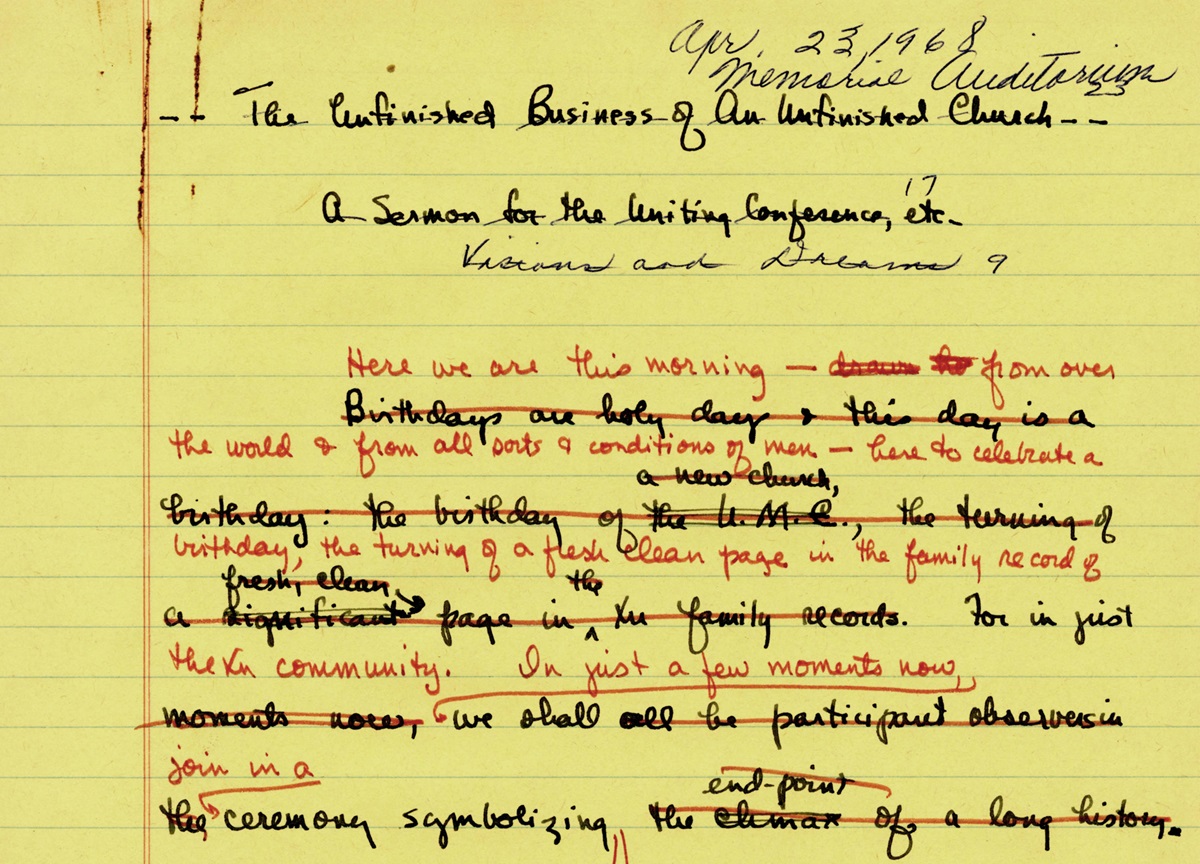 Apr. 23, 1968
Memorial Auditorium
23
-- The Unfinished Business of An Unfinished Church --
17
A Sermon for the Uniting Conference, etc.
Visions and Dreams 9
Here we are this morning — drawn to from over
Birthdays are holy days & this day is a
the world & from all sorts & conditions of men — here to celebrate a
a new church,
birthday: the birthday of the U.M.C., the turning of
birthday, the turning of a fresh clean page in the family record of
fresh, clean the
a significant page in ^ Xn family records. For in just
the Xn community. In just a few moments now,
moments now, we shall all be participant observers in
join in a
end-point
the ceremony symbolizing the climax of a long history.